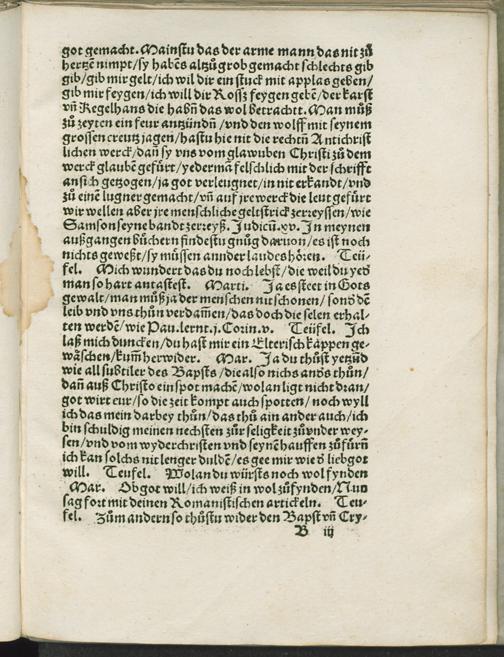 got gemacht. Mainstu das der arme mann das nit zů
hertzē nimpt/sy habēs altzů grob gemacht schlechts gib
gib/gib mir gelt/ich wil dir ein stuck mit applas geben/
gib mir feygen/ich will dir Rossz feygen gebē/der karst
vn̄ Kegelhans die habn̄ das wol betracht. Man můß
zů zeyten ein feur antzündn̄/vnd den wolff mit seynem
grossen creutz jagen/hastu hie nit die rechtn̄ Antichrist
lichen werck/dan̄ sy vns vom glawuben Christi zů dem
werck glaubē gefürt/yederma felschlich mit der schrifft
an sich getzogen/ja got verleugnet/in nit erkandt/vnd
zů einē lugner gemacht/vn̄ auf jre werck die leut gefürt
wir wellen aber jre menschliche geltstrick zerreyssen/wie
Samson seyne bandt zerreyß. Judicū.xv. In meynen
außgangen büchern findestu gnůg daruon/es ist noch
nichts geweßt/sy müssen annder laudes hören. Teü-
fel. Mich wundert das du noch lebst/die weil du yed̄
man so hart antastest. Marti. Ja es steet in Gots
gewalt/man můß ja der menschen nit schonen/sond̄ē
leib vnd vns thün verdam̄en/das doch die selen erhal-
ten werdē/wie Pau.lernt.j.Corin.v. Teüfel. Ich
laß mich duncken/du hast mir ein Elterisch kappen ge-
wäschen/kum̄ her wider. Mar. Ja du thůst yetzūd
wie all subtiler des Bapsts/die also nichs and̄s thůn/
dan̄ auß Christo ein spot machē/wolan ligt nicht dran/
got wirt eur/so die zeit kompt auch spotten/noch wyll
ich das mein darbey thůn/das thů ain ander auch/ich
bin schuldig meinen nechsten zůr seligkeit zůvnder wey-
sen/vnd vom wyderchristen vnd seynē hauffen zůfürn̄
ich kan solchs nit lenger duldē/es gee mir wie d̄ lieb got
will. Teufel. Wolan du würsts noch wol fynden
Mar. Ob got will/ich weiß in wol zůfynden/Nun
sag fort mit deinen Romanistischen artickeln. Teu-
fel. Zům andern so thůstu wider den Bapst vn̄ Cry-
B iij